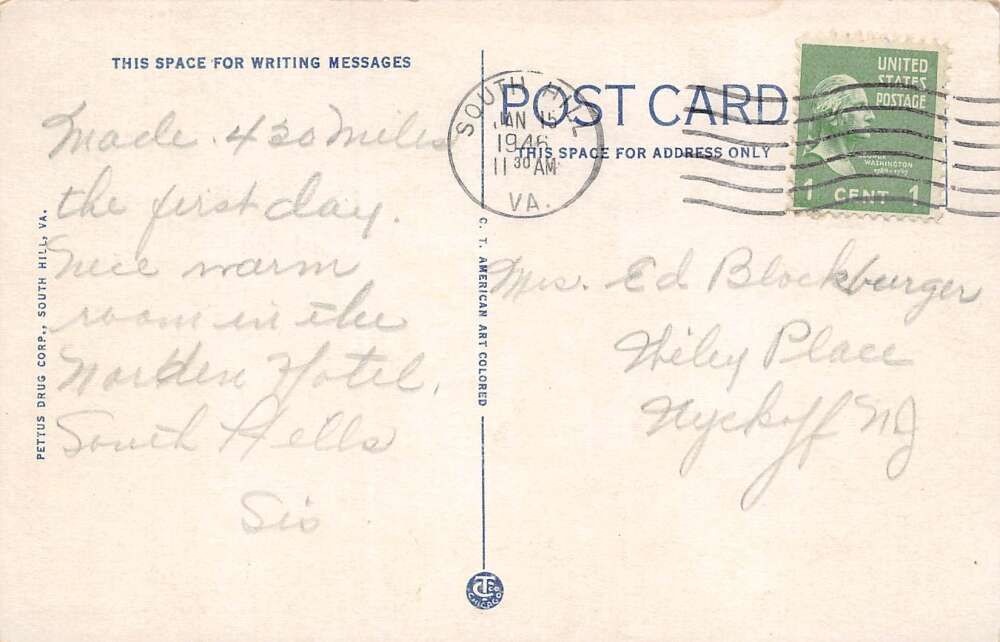 THIS SPACE FOR WRITING MESSAGES
Made 430 Miles
the first day.
Nice warm
room in the
Hotel,
South Hills
Sis
PETTUS DRUG CORP., SOUTH HILL, VA.
C. T. AMERICAN ART COLORED
CT CO
CHICAGO
POST CARD
THIS SPACE FOR ADDRESS ONLY
SOUTH HILL
JAN 15
1946
11 30 AM
VA.
UNITED
STATES
POSTAGE
GEORGE
WASHINGTON
1789-1797
1 CENT 1
Mrs. Ed Blockburger
Wiley Place
Wyckoff NJ